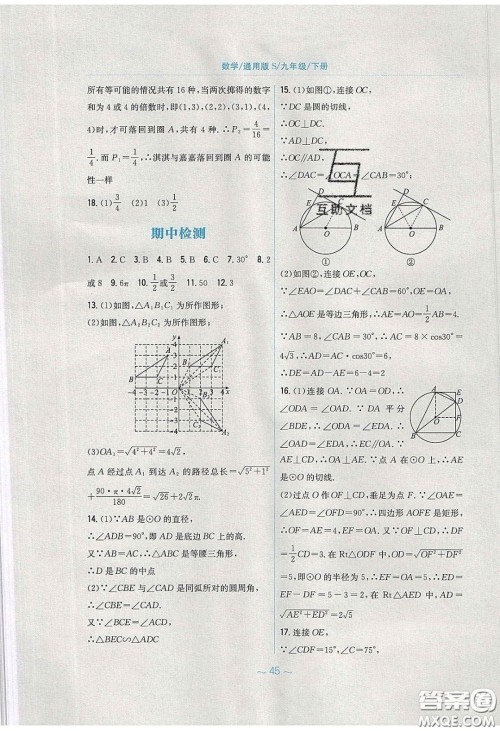 数学/通用版 S/九年级/下册
所有等可能的情况共有 16 种,两次掷得的数字
和为 4 或 4 的倍数时,即(1,3),(2,2),(3,1),
(4,4)时,才可落回到圈 A,共有 4 种.∴P₂=4/16
=1/4.而 P₁=1/4,∴淇淇与嘉嘉落回到圈 A 的可能
性一样
18.(1)3/4 (2)1 (3)1/2
期中检测
8.2
或8 9.6π 10.1/2或3/2 11.50 12.3
13.(1)如图,△A₁B₁C₁ 为所作图形;
(2)如图,△A₂B₂C₂ 为所作图形;
(3)OA₁=√(4²+4²)=4√2,
点 A 经过点 A₁ 到达 A₂ 的路径总长=√(5²+1²)
+90·π·4√2/180=√26+2√2π
14.(1)∵AB 是⊙O 的直径,
∴∠ADB=90°,即 AD 是底边 BC 上的高.
又∵AB=AC,∴△ABC 是等腰三角形,
∴D 是 BC 的中点
(2)∵∠CBE 与∠CAD 是同弧所对的圆周角,
∴∠CBE=∠CAD.
又∵∠BCE=∠ACD,
∴△BEC∽△ADC
15.(1)如图①,连接 OC,
∵DC 是圆的切线,
∴OC⊥DC.
∵AD⊥DC,
∴OC∥AD,
∴∠DAC=∠OCA=∠CAB=30°;
互助文档
① ②
(2)如图②,连接 OE,OC,
∵∠EAO=∠DAC+∠CAB=60°,OE=OA,
∴△AOE 是等边三角形,∴AE=AO=1/2 AB=4.
∵AB=8,∠CAB=30°,∴AC=8×cos30°=
4√3,∴AD=AC·cos30°=6,
∴DE=AD-AE=2
16.(1)连接 OA.∵OA=OD,∴
∠ODA=∠OAD.∵DA 平分
∠BDE,∴∠ODA=∠EDA,∴
∠OAD=∠EDA,∴EC∥OA.∵
AE⊥CD,∴OA⊥AE,∴AE
是⊙O 的切线.
(2)过点 O 作 OF⊥CD,垂足为点 F.∵∠OAE
=∠AED=∠OFD=90°,∴四边形 AOFE 是矩形,
∴OF=AE=4,EF=OA.∵OF⊥CD,∴DF=
1/2 CD=3,在 Rt△ODF 中,OD=√(OF²+DF²)
=5,即⊙O 的半径为 5,∴EF=OA=5,∴ED=
EF-DF=5-3=2,在 Rt△AED 中,AD=
√(AE²+ED²)=2√5
17.连接 OE,
∵∠CDF=15°,∠C=75°,
～45～
答案圈
MXQE.COM